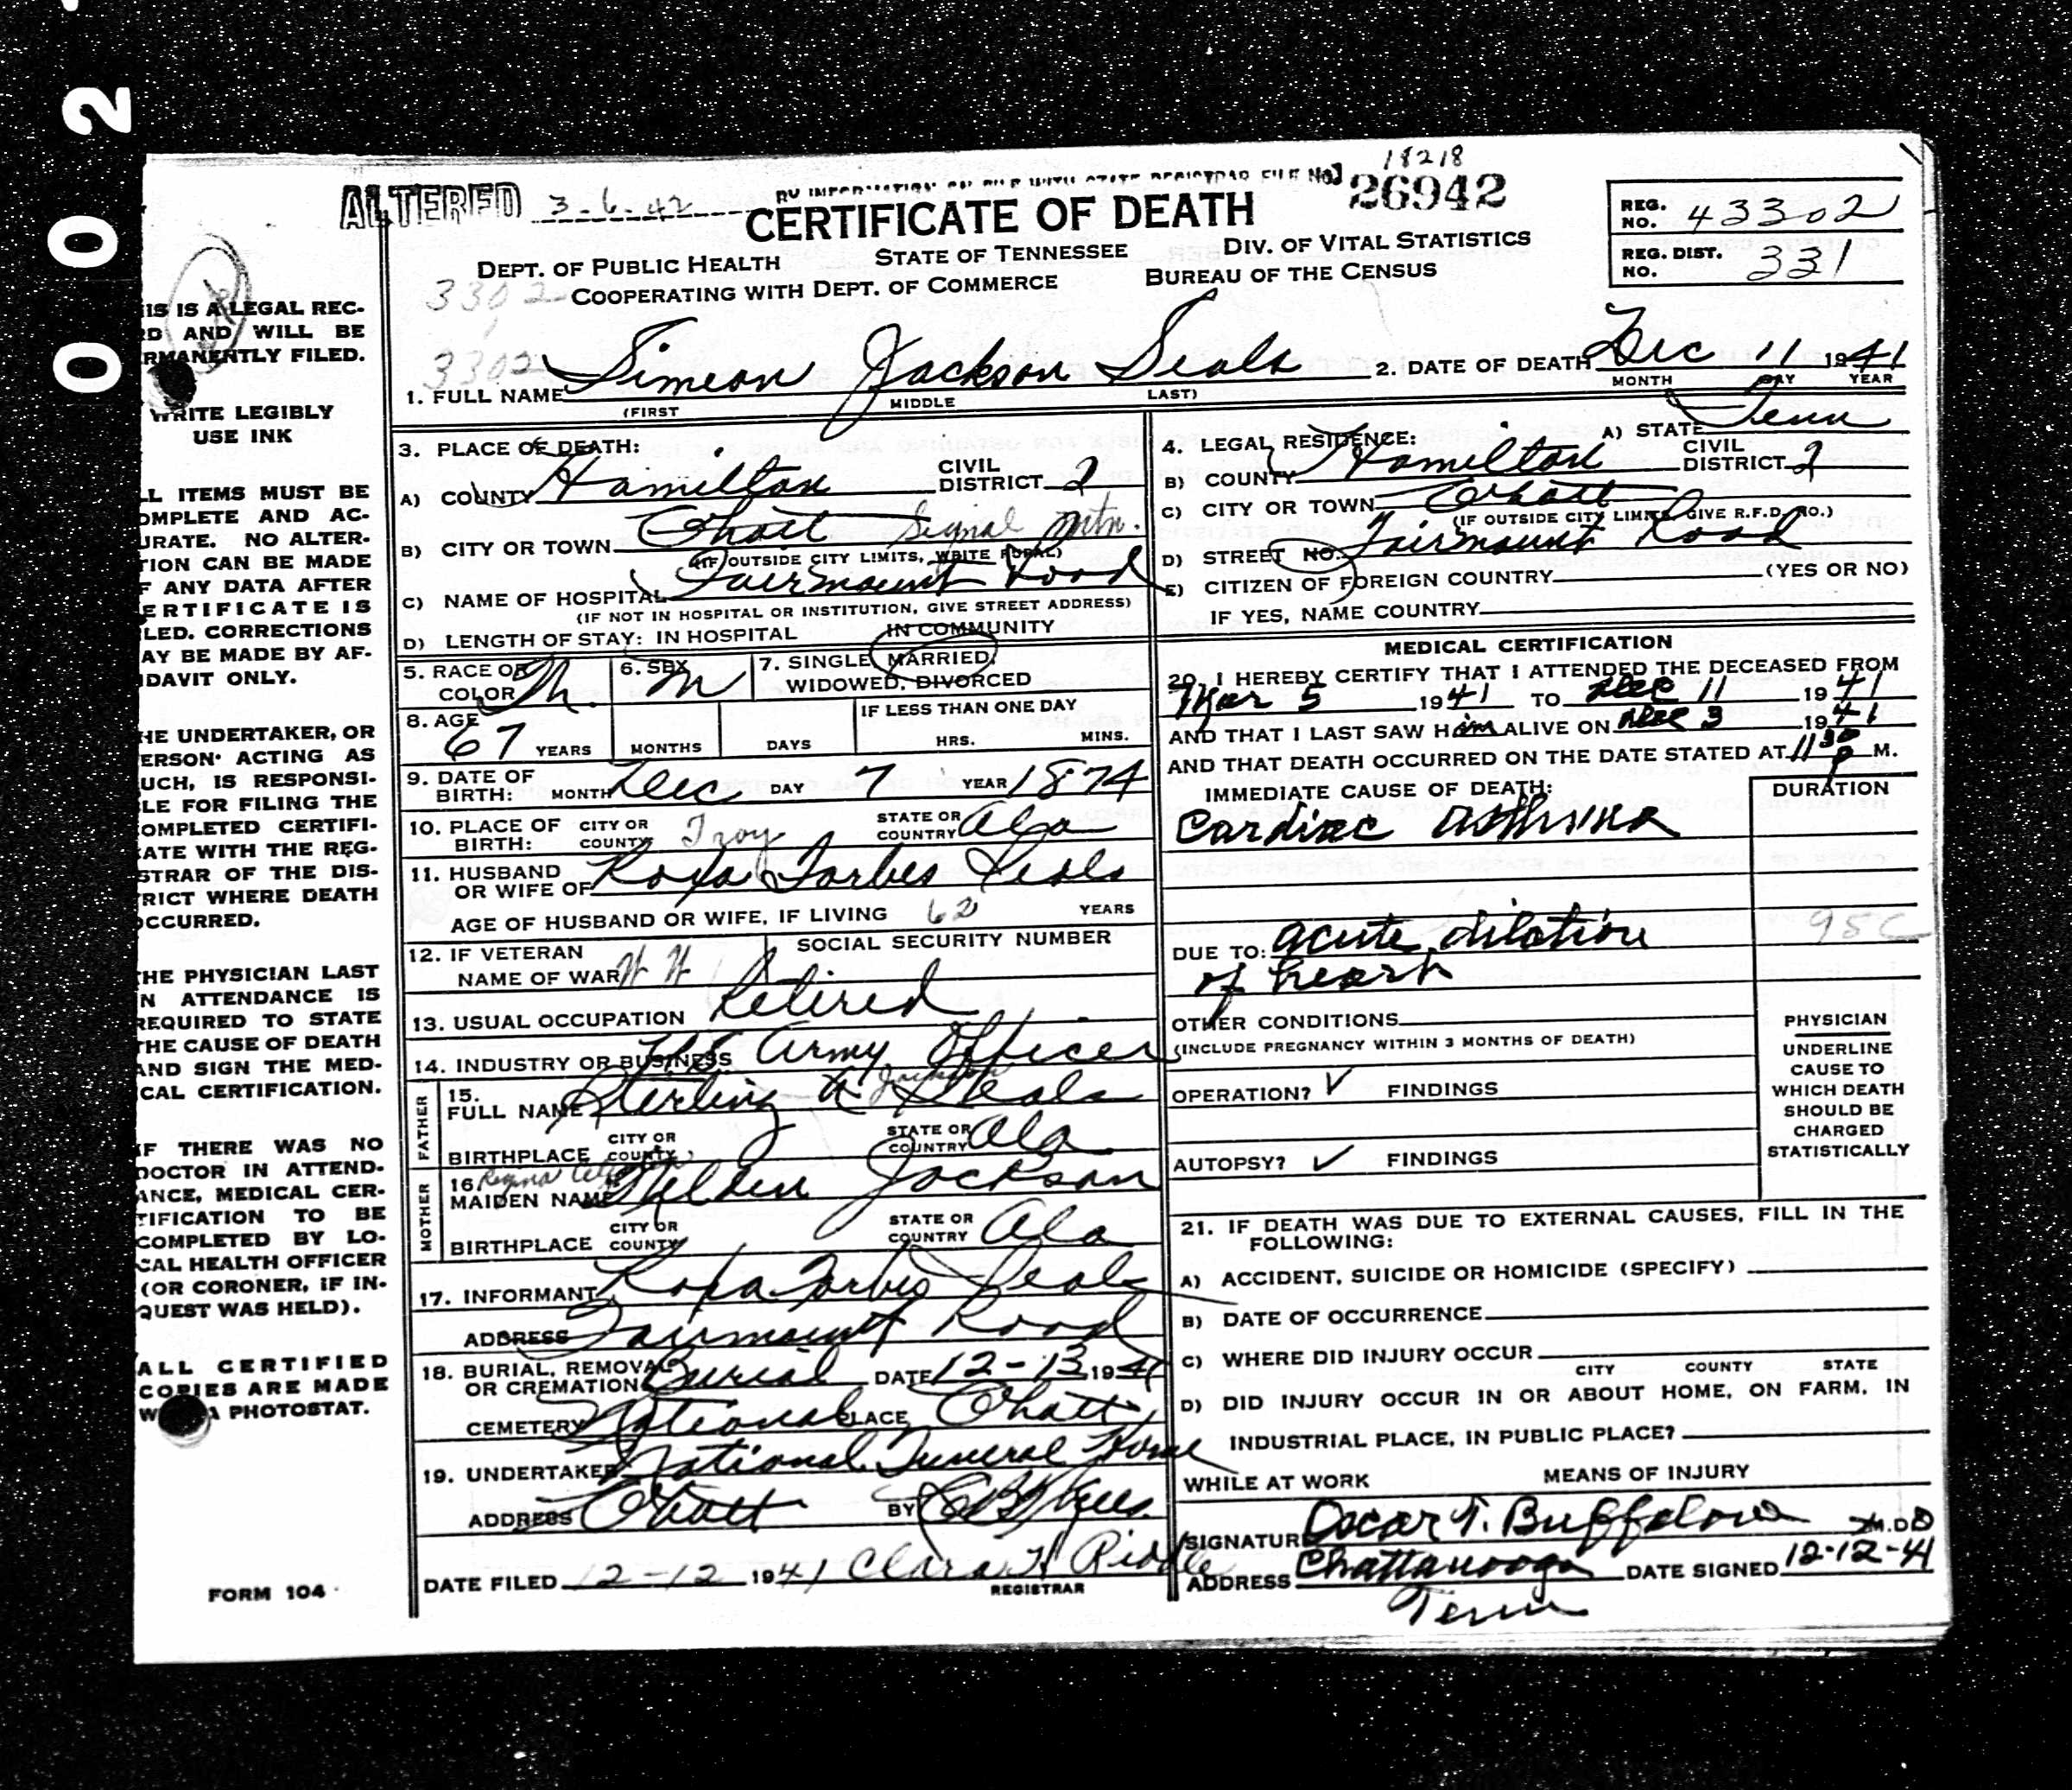 0 0 2
ALTERED 3-6-42 BY INFORMATION ON FILE WITH STATE REGISTRAR FILE NO. 18218
26942
CERTIFICATE OF DEATH
REG. NO. 43302
REG. DIST. NO. 331
DEPT. OF PUBLIC HEALTH STATE OF TENNESSEE DIV. OF VITAL STATISTICS
3302 COOPERATING WITH DEPT. OF COMMERCE BUREAU OF THE CENSUS
3302
1. FULL NAME Simeon Jackson Seals 2. DATE OF DEATH Dec 11 1941
(FIRST MIDDLE LAST) MONTH DAY YEAR
3. PLACE OF DEATH:
A) COUNTY Hamilton CIVIL DISTRICT 2
B) CITY OR TOWN Chatt Signal Mtn.
(IF OUTSIDE CITY LIMITS, WRITE RURAL)
C) NAME OF HOSPITAL Fairmount Road
(IF NOT IN HOSPITAL OR INSTITUTION, GIVE STREET ADDRESS)
D) LENGTH OF STAY: IN HOSPITAL IN COMMUNITY
4. LEGAL RESIDENCE: A) STATE Tenn
B) COUNTY Hamilton CIVIL DISTRICT 2
C) CITY OR TOWN Chatt
(IF OUTSIDE CITY LIMITS, GIVE R.F.D. NO.)
D) STREET NO. Fairmount Road
E) CITIZEN OF FOREIGN COUNTRY (YES OR NO)
IF YES, NAME COUNTRY
5. RACE OR COLOR 6. SEX M 7. SINGLE, MARRIED, WIDOWED, DIVORCED
8. AGE 67 YEARS MONTHS DAYS IF LESS THAN ONE DAY HRS. MINS.
9. DATE OF BIRTH: MONTH Dec DAY 7 YEAR 1874
10. PLACE OF BIRTH: CITY OR COUNTY Troy STATE OR COUNTRY Ala
11. HUSBAND OR WIFE OF Roxa Forbes Seals
AGE OF HUSBAND OR WIFE, IF LIVING 62 YEARS
12. IF VETERAN NAME OF WAR W W SOCIAL SECURITY NUMBER
13. USUAL OCCUPATION Retired
14. INDUSTRY OR BUSINESS US Army Officer
FATHER
15. FULL NAME Sterling A Jackson Seals
BIRTHPLACE CITY OR COUNTY STATE OR COUNTRY Ala
MOTHER
16. MAIDEN NAME Jackson
BIRTHPLACE CITY OR COUNTY STATE OR COUNTRY Ala
17. INFORMANT Roxa Forbes Seals
ADDRESS Fairmount Road
18. BURIAL, REMOVAL OR CREMATION Burial DATE 12-13 1941
CEMETERY National PLACE Chatt
19. UNDERTAKER National Funeral Home
ADDRESS Chatt BY
DATE FILED 12-12 1941 Clara H Riddle
REGISTRAR
MEDICAL CERTIFICATION
20. I HEREBY CERTIFY THAT I ATTENDED THE DECEASED FROM
Mar 5 1941 TO Dec 11 1941
AND THAT I LAST SAW HIM ALIVE ON Dec 3 1941
AND THAT DEATH OCCURRED ON THE DATE STATED AT 11 30 P M.
IMMEDIATE CAUSE OF DEATH: DURATION
Cardiac Asthma
DUE TO: acute dilation 95c
of heart
OTHER CONDITIONS
(INCLUDE PREGNANCY WITHIN 3 MONTHS OF DEATH)
OPERATION? ✓ FINDINGS
AUTOPSY? ✓ FINDINGS
PHYSICIAN
UNDERLINE
CAUSE TO
WHICH DEATH
SHOULD BE
CHARGED
STATISTICALLY
21. IF DEATH WAS DUE TO EXTERNAL CAUSES, FILL IN THE
FOLLOWING:
A) ACCIDENT, SUICIDE OR HOMICIDE (SPECIFY)
B) DATE OF OCCURRENCE
C) WHERE DID INJURY OCCUR
CITY COUNTY STATE
D) DID INJURY OCCUR IN OR ABOUT HOME, ON FARM, IN
INDUSTRIAL PLACE, IN PUBLIC PLACE?
WHILE AT WORK MEANS OF INJURY
SIGNATURE Oscar T. Buffalow M.D.
ADDRESS Chattanooga DATE SIGNED 12-12-41
Tenn
IS IS A LEGAL REC-
RD AND WILL BE
RMANENTLY FILED.
WRITE LEGIBLY
USE INK
LL ITEMS MUST BE
OMPLETE AND AC-
URATE. NO ALTER-
TION CAN BE MADE
F ANY DATA AFTER
ERTIFICATE IS
LED. CORRECTIONS
AY BE MADE BY AF-
IDAVIT ONLY.
HE UNDERTAKER, OR
ERSON ACTING AS
UCH, IS RESPONSI-
LE FOR FILING THE
OMPLETED CERTIFI-
ATE WITH THE REG-
STRAR OF THE DIS-
RICT WHERE DEATH
OCCURRED.
HE PHYSICIAN LAST
N ATTENDANCE IS
REQUIRED TO STATE
HE CAUSE OF DEATH
AND SIGN THE MED-
CAL CERTIFICATION.
IF THERE WAS NO
DOCTOR IN ATTEND-
ANCE, MEDICAL CER-
TIFICATION TO BE
COMPLETED BY LO-
CAL HEALTH OFFICER
(OR CORONER, IF IN-
QUEST WAS HELD).
ALL CERTIFIED
COPIES ARE MADE
A PHOTOSTAT.
FORM 104